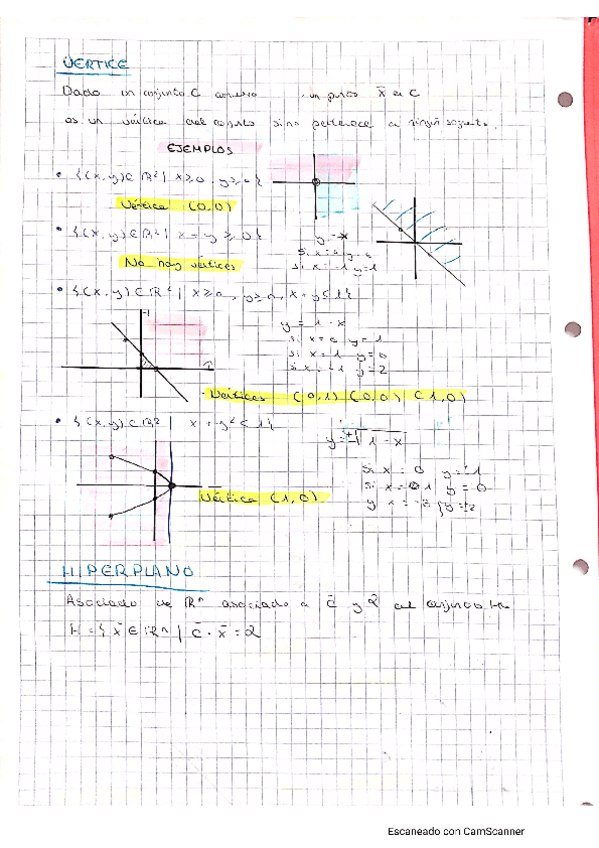 VERTICE
Dado un conjunto C convexo , un punto x̄ ∈ C
es un vértice del conjunto si no pertenece a ningún segmento.
EJEMPLOS
• {(x,y)∈ℝ² | x≥0, y≥0}
Vértice (0,0)
• {(x,y)∈ℝ² | x+y≥0}
y=-x
si x=0 y=0
si x=-1 y=1
No hay vértices
• {(x,y)∈ℝ² | x≥0, y≥0, x+y≤1}
y = 1-x
si x=0 y=1
si x=1 y=0
si x=-1 y=2
Vértices (0,1) (0,0) (1,0)
• {(x,y)∈ℝ² | x+y²≤1}
y=±√1-x
si x=0 y=±1
si x=1 y=0
Vértice (1,0)
HIPERPLANO
Asociado de ℝⁿ asociado a c̄ y 2 al conjunto
H={x̄∈ℝⁿ | c̄·x̄=2
Escaneado con CamScanner